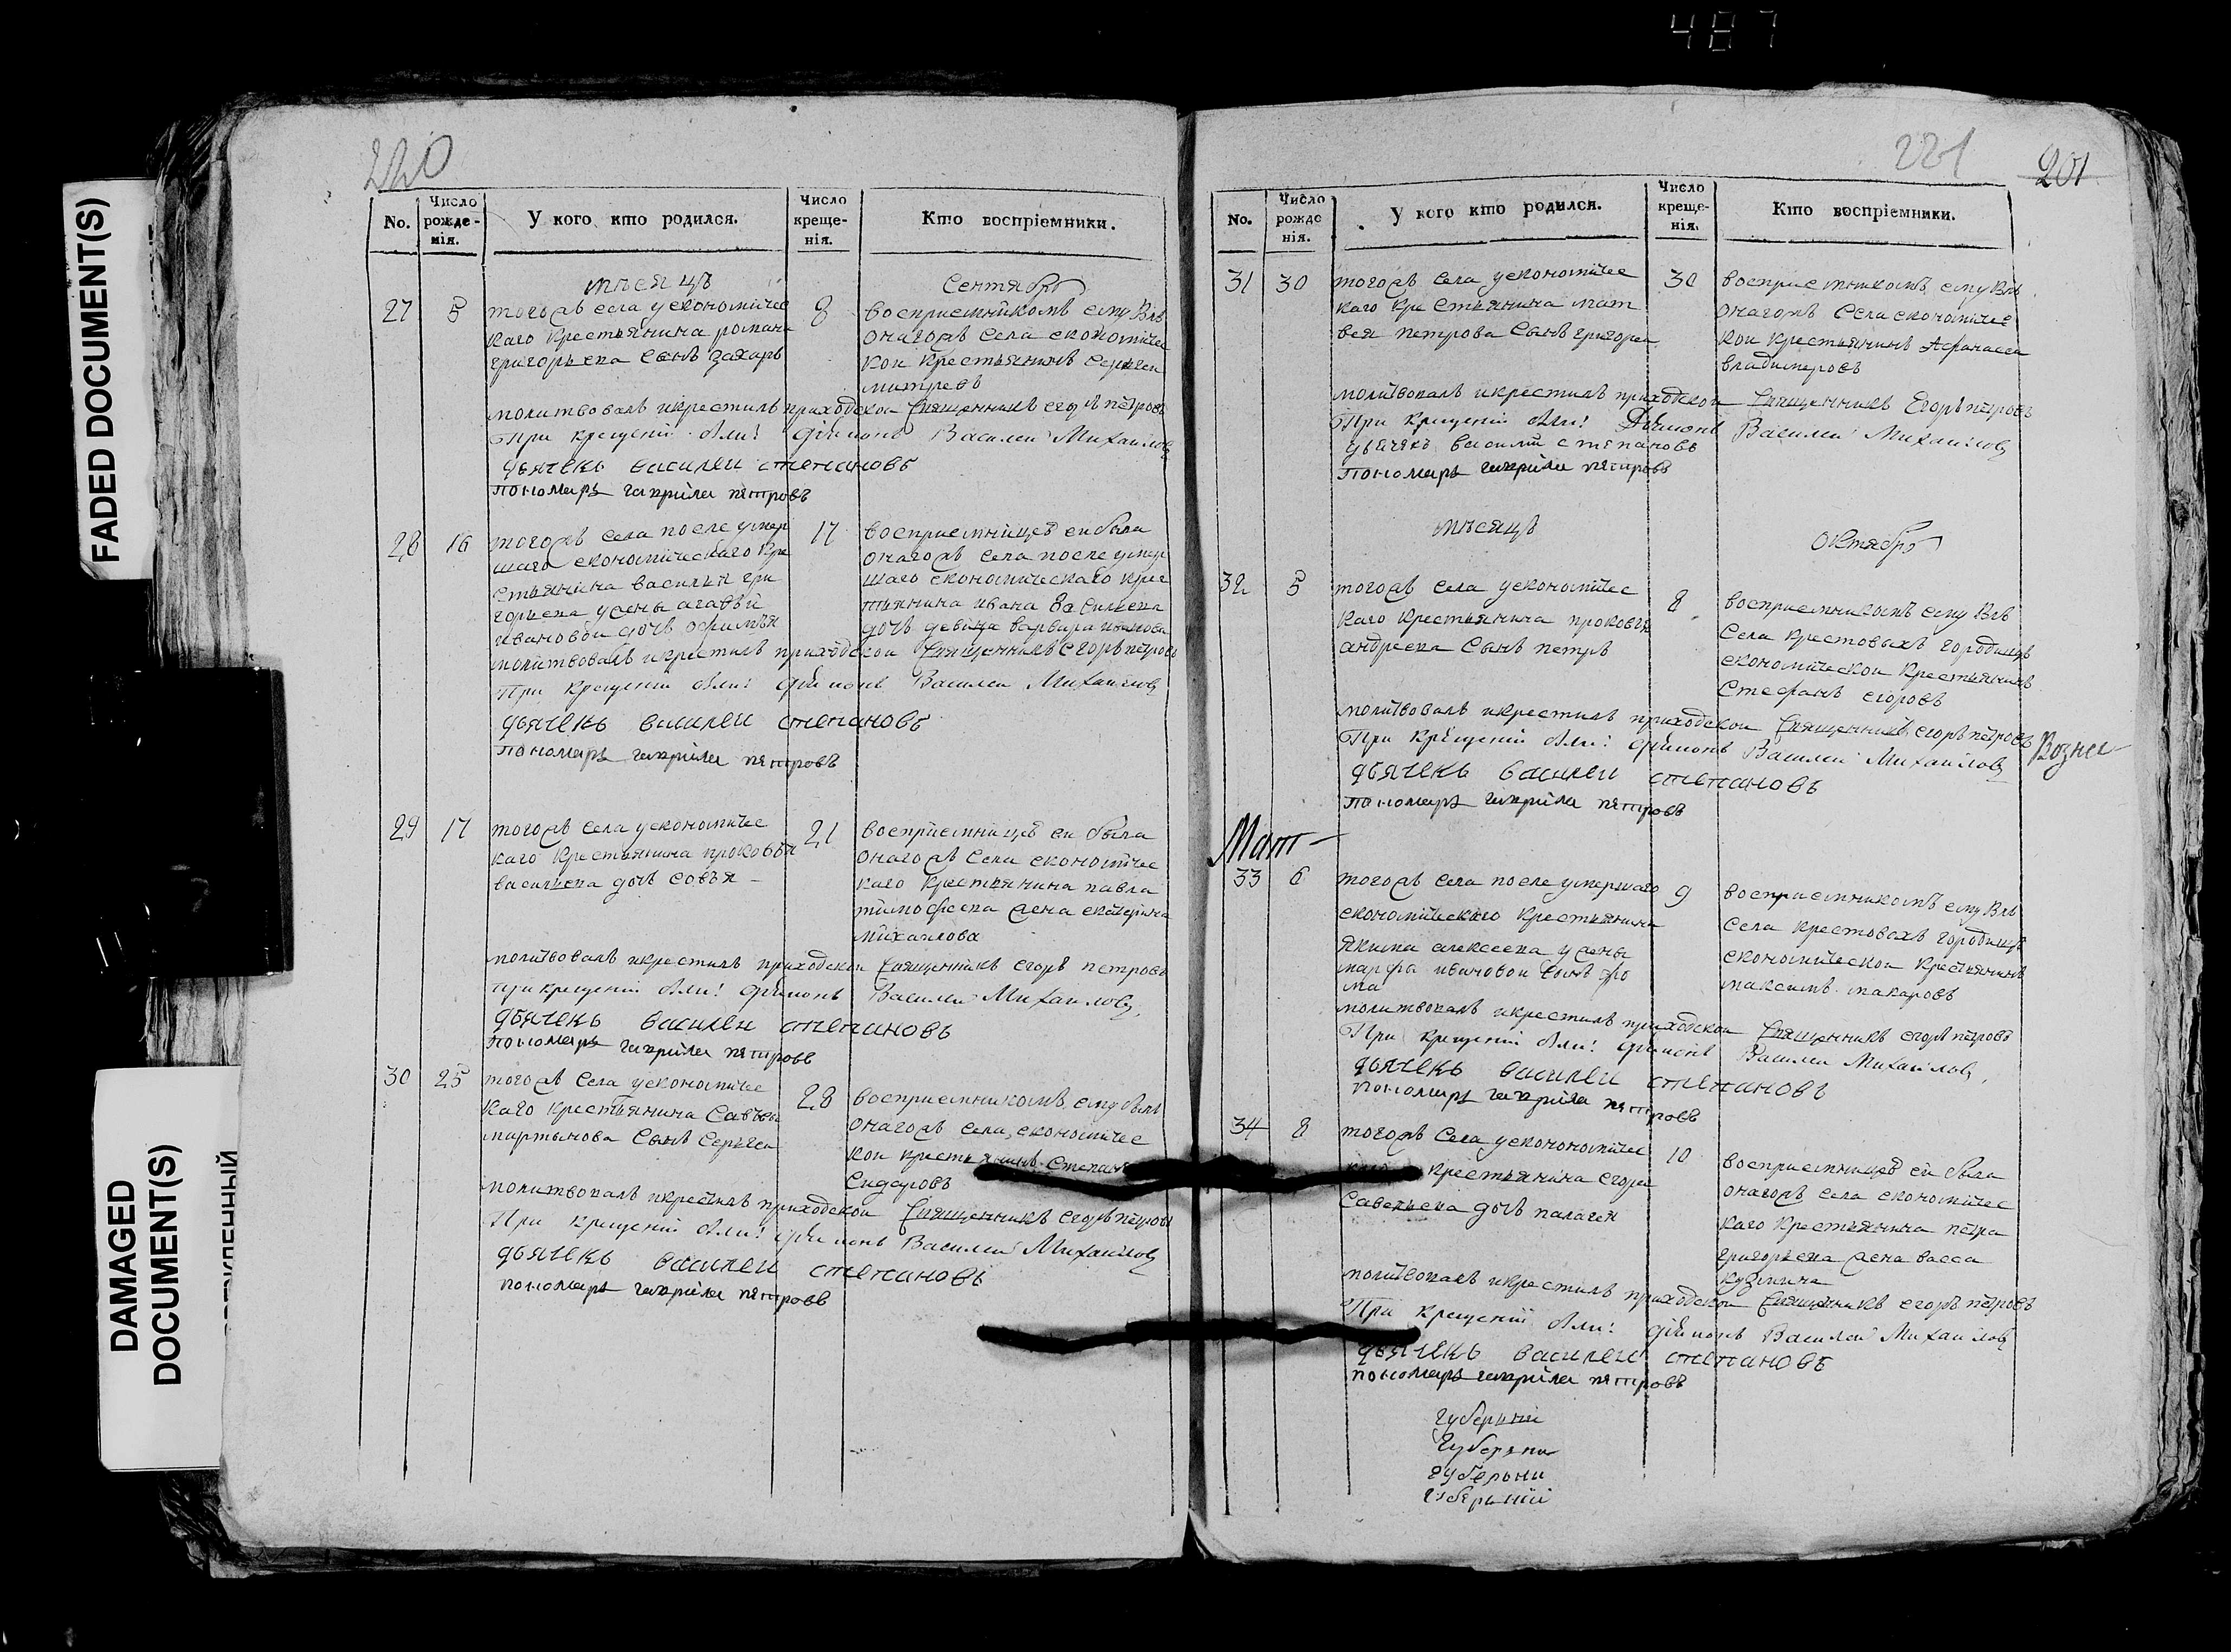 487
FADED DOCUMENT(S)
DAMAGED
DOCUMENT(S)
220
No.
Число
рожде-
нія.
У кого кто родился.
Число
креще-
нія.
Кто воспріемники.
мѣсяцъ
Сентябрь
27
5
тогожъ села у економичес
каго крестьянина романа
григорьева сынъ захаръ
8
восприемникомъ ему былъ
онагожъ села економичес
кои крестьянинъ Сергеи
митревъ
молитвовалъ и крестилъ приходскои Священникъ егоръ петровъ
При крещеніи были: діаконъ Василеи Михаиловъ
дьячекъ василеи степановъ
пономарь гаврила петровъ
28
16
тогожъ села после умер
шаго економическаго кре
стьянина василья гри
горьева у жены агафьи
ивановой дочь офимья
17
восприемницею еи была
онагожъ села после умер
шаго економическаго крес
тьянина ивана Васильева
дочь девица варвара иванова
молитвовалъ и крестилъ приходскои Священникъ егоръ петровъ
При крещеніи были: діаконъ Василеи Михаиловъ
дьячекъ василеи степановъ
пономарь гаврила петровъ
29
17
тогожъ села у економичес
каго крестьянина прокофья
васильева дочь софья
21
восприемницею еи была
онагожъ села економичес
каго крестьянина павла
тимофеева жена екатерина
михаилова
молитвовалъ и крестилъ приходскои Священникъ егоръ петровъ
при крещеніи были: діаконъ Василеи Михаиловъ
дьячекъ василеи степановъ
пономарь гаврила петровъ
30
25
тогожъ села у економичес
каго крестьянина Савельи
мартынова сынъ Сергеи
28
восприемникомъ ему былъ
онагожъ села економичес
кои крестьянинъ Степанъ
Сидаровъ
молитвовалъ и крестилъ приходскои Священникъ егоръ петровъ
При крещеніи были: діаконъ Василеи Михаиловъ
дьячекъ василеи степановъ
пономарь гаврила петровъ
221
201
No.
Число
рожде
нія.
У кого кто родился.
Число
креще-
нія.
Кто воспріемники.
31
30
тогожъ села у економичес
каго крестьянина мат
вея петрова сынъ григореи
30
восприемникомъ ему былъ
онагожъ Села економичес
кои крестьянинъ Афанасеи
владимеровъ
молитвовалъ и крестилъ приходскои Священникъ Егоръ петровъ
При крещеніи были: Діаконъ Василеи Михаиловъ
дьячекъ василии степановъ
пономарь гаврила петровъ
мѣсяцъ
Октябрь
32
5
тогожъ села у економичес
каго крестьянина прокофья
андреева сынъ петръ
8
восприемникомъ ему былъ
Села крестовыхъ городищъ
економическои крестьянинъ
Стефанъ егоровъ
молитвовалъ и крестилъ приходскои Священникъ егоръ петровъ
При крещеніи были: діаконъ Василеи Михаиловъ
дьячекъ василеи степановъ
пономарь гаврила петровъ
Возне-
Мат-
33
6
тогожъ села после умершаго
економическаго крестьянина
якима алексеева у жены
марфы ивановои сынъ фо
ма
9
восприемникомъ ему былъ
села крестовыхъ городищъ
економическои крестьянинъ
максимъ макаровъ
молитвовалъ и крестилъ приходскои Священникъ егоръ петровъ
При крещеніи были: діаконъ Василеи Михаиловъ
дьячекъ василеи степановъ
пономарь гаврила петровъ
34
8
тогожъ села у економомичес
каго крестьянина егора
Савельева дочь палагея
10
восприемницею еи была
онагожъ села економичес
каго крестьянина петра
григорьева жена васса
кузмина
молитвовалъ и крестилъ приходскои Священникъ егоръ петровъ
При крещеніи были: діаконъ Василеи Михаиловъ
дьячекъ василеи степановъ
пономарь гаврила петровъ
губерніи
губерни
губерони
губерніи